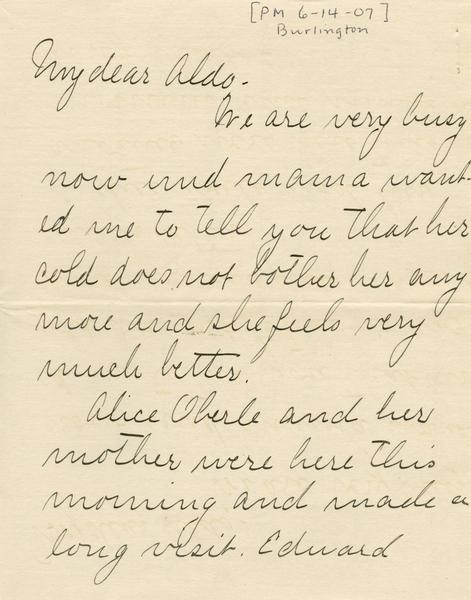 [PM 6-14-07]
Burlington
My dear Aldo-
We are very busy
now und mama want-
ed me to tell you that her
cold does not bother her any
more and she feels very
much better.
Alice Oberle and her
mother were here this
morning and made a
long visit. Edward